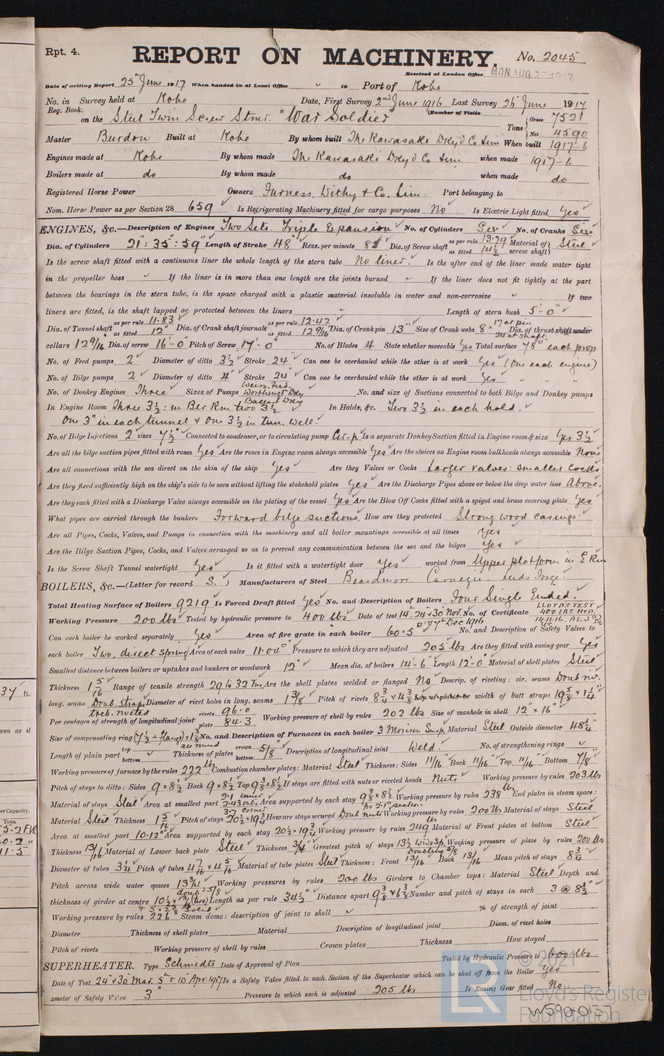 Rpt. 4.
REPORT ON MACHINERY.
No. 2045
Received at London Office MON. AUG. 1917
Date of writing Report 25th June 1917 When handed in at Local Office 19 Port of Kobe
No. in Survey held at Kobe Date, First Survey 2nd June 1916 Last Survey 25 June 1917
Reg. Book. (Number of Visits
on the Steel Twin Screw Stmr. "War Soldier" Tons { Gross 7521 Net 4590
Master Burdon Built at Kobe By whom built The Kawasaki Dkyd Co Lim When built 1917-6
Engines made at Kobe By whom made The Kawasaki Dkyd Co Lim when made 1917-6
Boilers made at do By whom made do when made do
Registered Horse Power Owners Furness, Withy & Co. Lim. Port belonging to
Nom. Horse Power as per Section 28 659 Is Refrigerating Machinery fitted for cargo purposes No Is Electric Light fitted Yes
ENGINES, &c.—Description of Engines Two Sets Triple Expansion No. of Cylinders Six No. of Cranks Six
Dia. of Cylinders 21: 35: 59" Length of Stroke 48" Revs. per minute Dia. of Screw shaft as per rule 13.79 as fitted 14½" Material of screw shaft Steel
Is the screw shaft fitted with a continuous liner the whole length of the stern tube No liner Is the after end of the liner made water tight
in the propeller boss If the liner is in more than one length are the joints burned If the liner does not fit tightly at the part
between the bearings in the stern tube, is the space charged with a plastic material insoluble in water and non-corrosive If two
liners are fitted, is the shaft lapped or protected between the liners Length of stern bush 5'-0"
Dia. of Tunnel shaft as per rule 11.83 as fitted 12" Dia. of Crank shaft journals as per rule 12.42 as fitted 12 9/16 Dia. of Crank pin 13" Size of Crank webs Dia. of thrust shaft under
collars 12 9/16 Dia. of screw 16'-0" Pitch of Screw 17'-0" No. of Blades 4 State whether moveable Yes Total surface 78 each prop
No. of Feed pumps 2 Diameter of ditto 3½ Stroke 24" Can one be overhauled while the other is at work Yes (One each engine)
No. of Bilge pumps 2 Diameter of ditto 4" Stroke 24" Can one be overhauled while the other is at work Yes
No. of Donkey Engines Three Sizes of Pumps No. and size of Suctions connected to both Bilge and Donkey pumps
In Engine Room Three 3½: in Blr Rm two 3½ In Holds, &c. Two 3½ in each hold.
One 3" in each tunnel & One 3½ in tun. well.
No. of Bilge Injections 2 sizes 7½" Connected to condenser, or to circulating pump Cir. p Is a separate Donkey Suction fitted in Engine room & size Yes 3½
Are all the bilge suction pipes fitted with roses Yes Are the roses in Engine room always accessible Yes Are the sluices on Engine room bulkheads always accessible None
Are all connections with the sea direct on the skin of the ship Yes Are they Valves or Cocks Larger valves: smaller cocks
Are they fixed sufficiently high on the ship's side to be seen without lifting the stokehold plates Yes Are the Discharge Pipes above or below the deep water line Above.
Are they each fitted with a Discharge Valve always accessible on the plating of the vessel Yes Are the Blow Off Cocks fitted with a spigot and brass covering plate Yes
What pipes are carried through the bunkers Forward bilge suctions How are they protected Strong wood casings
Are all Pipes, Cocks, Valves, and Pumps in connection with the machinery and all boiler mountings accessible at all times Yes
Are the Bilge Suction Pipes, Cocks, and Valves arranged so as to prevent any communication between the sea and the bilges Yes
Is the Screw Shaft Tunnel watertight Yes Is it fitted with a watertight door Yes worked from Upper platform in E Rm
BOILERS, &c.—(Letter for record S.) Manufacturers of Steel Beardmore Carnegie
Total Heating Surface of Boilers 9219 Is Forced Draft fitted Yes No. and Description of Boilers Four Single Ended.
Working Pressure 200 lbs Tested by hydraulic pressure to 400 lbs Date of test 14, 24 & 30 Nov. & 7 Dec 1916 No. of Certificate LLOYD'S TEST 400 LBS. HYD.
Can each boiler be worked separately Yes Area of fire grate in each boiler 60.5 No. and Description of Safety Valves to
each boiler Two, direct spring Area of each valve 11.04 Pressure to which they are adjusted 205 lbs Are they fitted with easing gear Yes
Smallest distance between boilers or uptakes and bunkers or woodwork 12" Mean dia. of boilers 14'-6" Length 12'-0" Material of shell plates Steel
Thickness 1 5/16 Range of tensile strength 29 to 32 tons Are the shell plates welded or flanged No Descrip. of riveting: cir. seams Doub. riv.
long. seams Doub. straps treb. riveted Diameter of rivet holes in long. seams 1 3/8 Pitch of rivets 8¾ x 4 3/8 Lap of plates or width of butt straps
Per centages of strength of longitudinal joint rivets 96.0 plate 84.3 Working pressure of shell by rules 202 lbs Size of manhole in shell 12" x 16"
Size of compensating ring No. and Description of Furnaces in each boiler 3 Morison Susp. Material Steel Outside diameter 48¼
Length of plain part top bottom Thickness of plates crown bottom 5/8 Description of longitudinal joint Weld No. of strengthening rings
Working pressure of furnace by the rules 222 lb Combustion chamber plates: Material Steel Thickness: Sides 11/16 Back 11/16 Top 11/16 Bottom 7/8
Pitch of stays to ditto: Sides 9 x 8½ Back 9 x 8½ Top If stays are fitted with nuts or riveted heads Nuts Working pressure by rules 203 lbs
Material of stays Steel Area at smallest part Area supported by each stay Working pressure by rules 238 lb End plates in steam space:
Material Steel Thickness 15/16 Pitch of stays How are stays secured Doub nuts Working pressure by rules 200 lbs Material of stays Steel
Area at smallest part 10.12 Area supported by each stay Working pressure by rules 249 Material of Front plates at bottom Steel
Thickness 13/16 Material of Lower back plate Steel Thickness ¾ Greatest pitch of stays Working pressure of plate by rules 200 lbs
Diameter of tubes 3¼ Pitch of tubes Material of tube plates Steel Thickness: Front 13/16 Back 13/16 Mean pitch of stays 8¾
Pitch across wide water spaces 13½ Working pressures by rules 200 lbs Girders to Chamber tops: Material Steel Depth and
thickness of girder at centre Length as per rule 34½ Distance apart Number and pitch of stays in each 3 @ 8½
Working pressure by rules 226 Steam dome: description of joint to shell % of strength of joint
Diameter Thickness of shell plates Material Description of longitudinal joint Diam. of rivet holes
Pitch of rivets Working pressure of shell by rules Crown plates Thickness How stayed
SUPERHEATER. Type Schmidts Date of Approval of Plan Tested by Hydraulic Pressure to 600 lbs
Date of Test 24 & 30 Mar. 5 & 10 Apr. 1917 Is a Safety Valve fitted to each Section of the Superheater which can be shut off from the Boiler Yes
ameter of Safety Valve 3" Pressure to which each is adjusted 205 lbs Is Easing Gear fitted No
© 2021
Lloyd's Register
Foundation
W590-0133